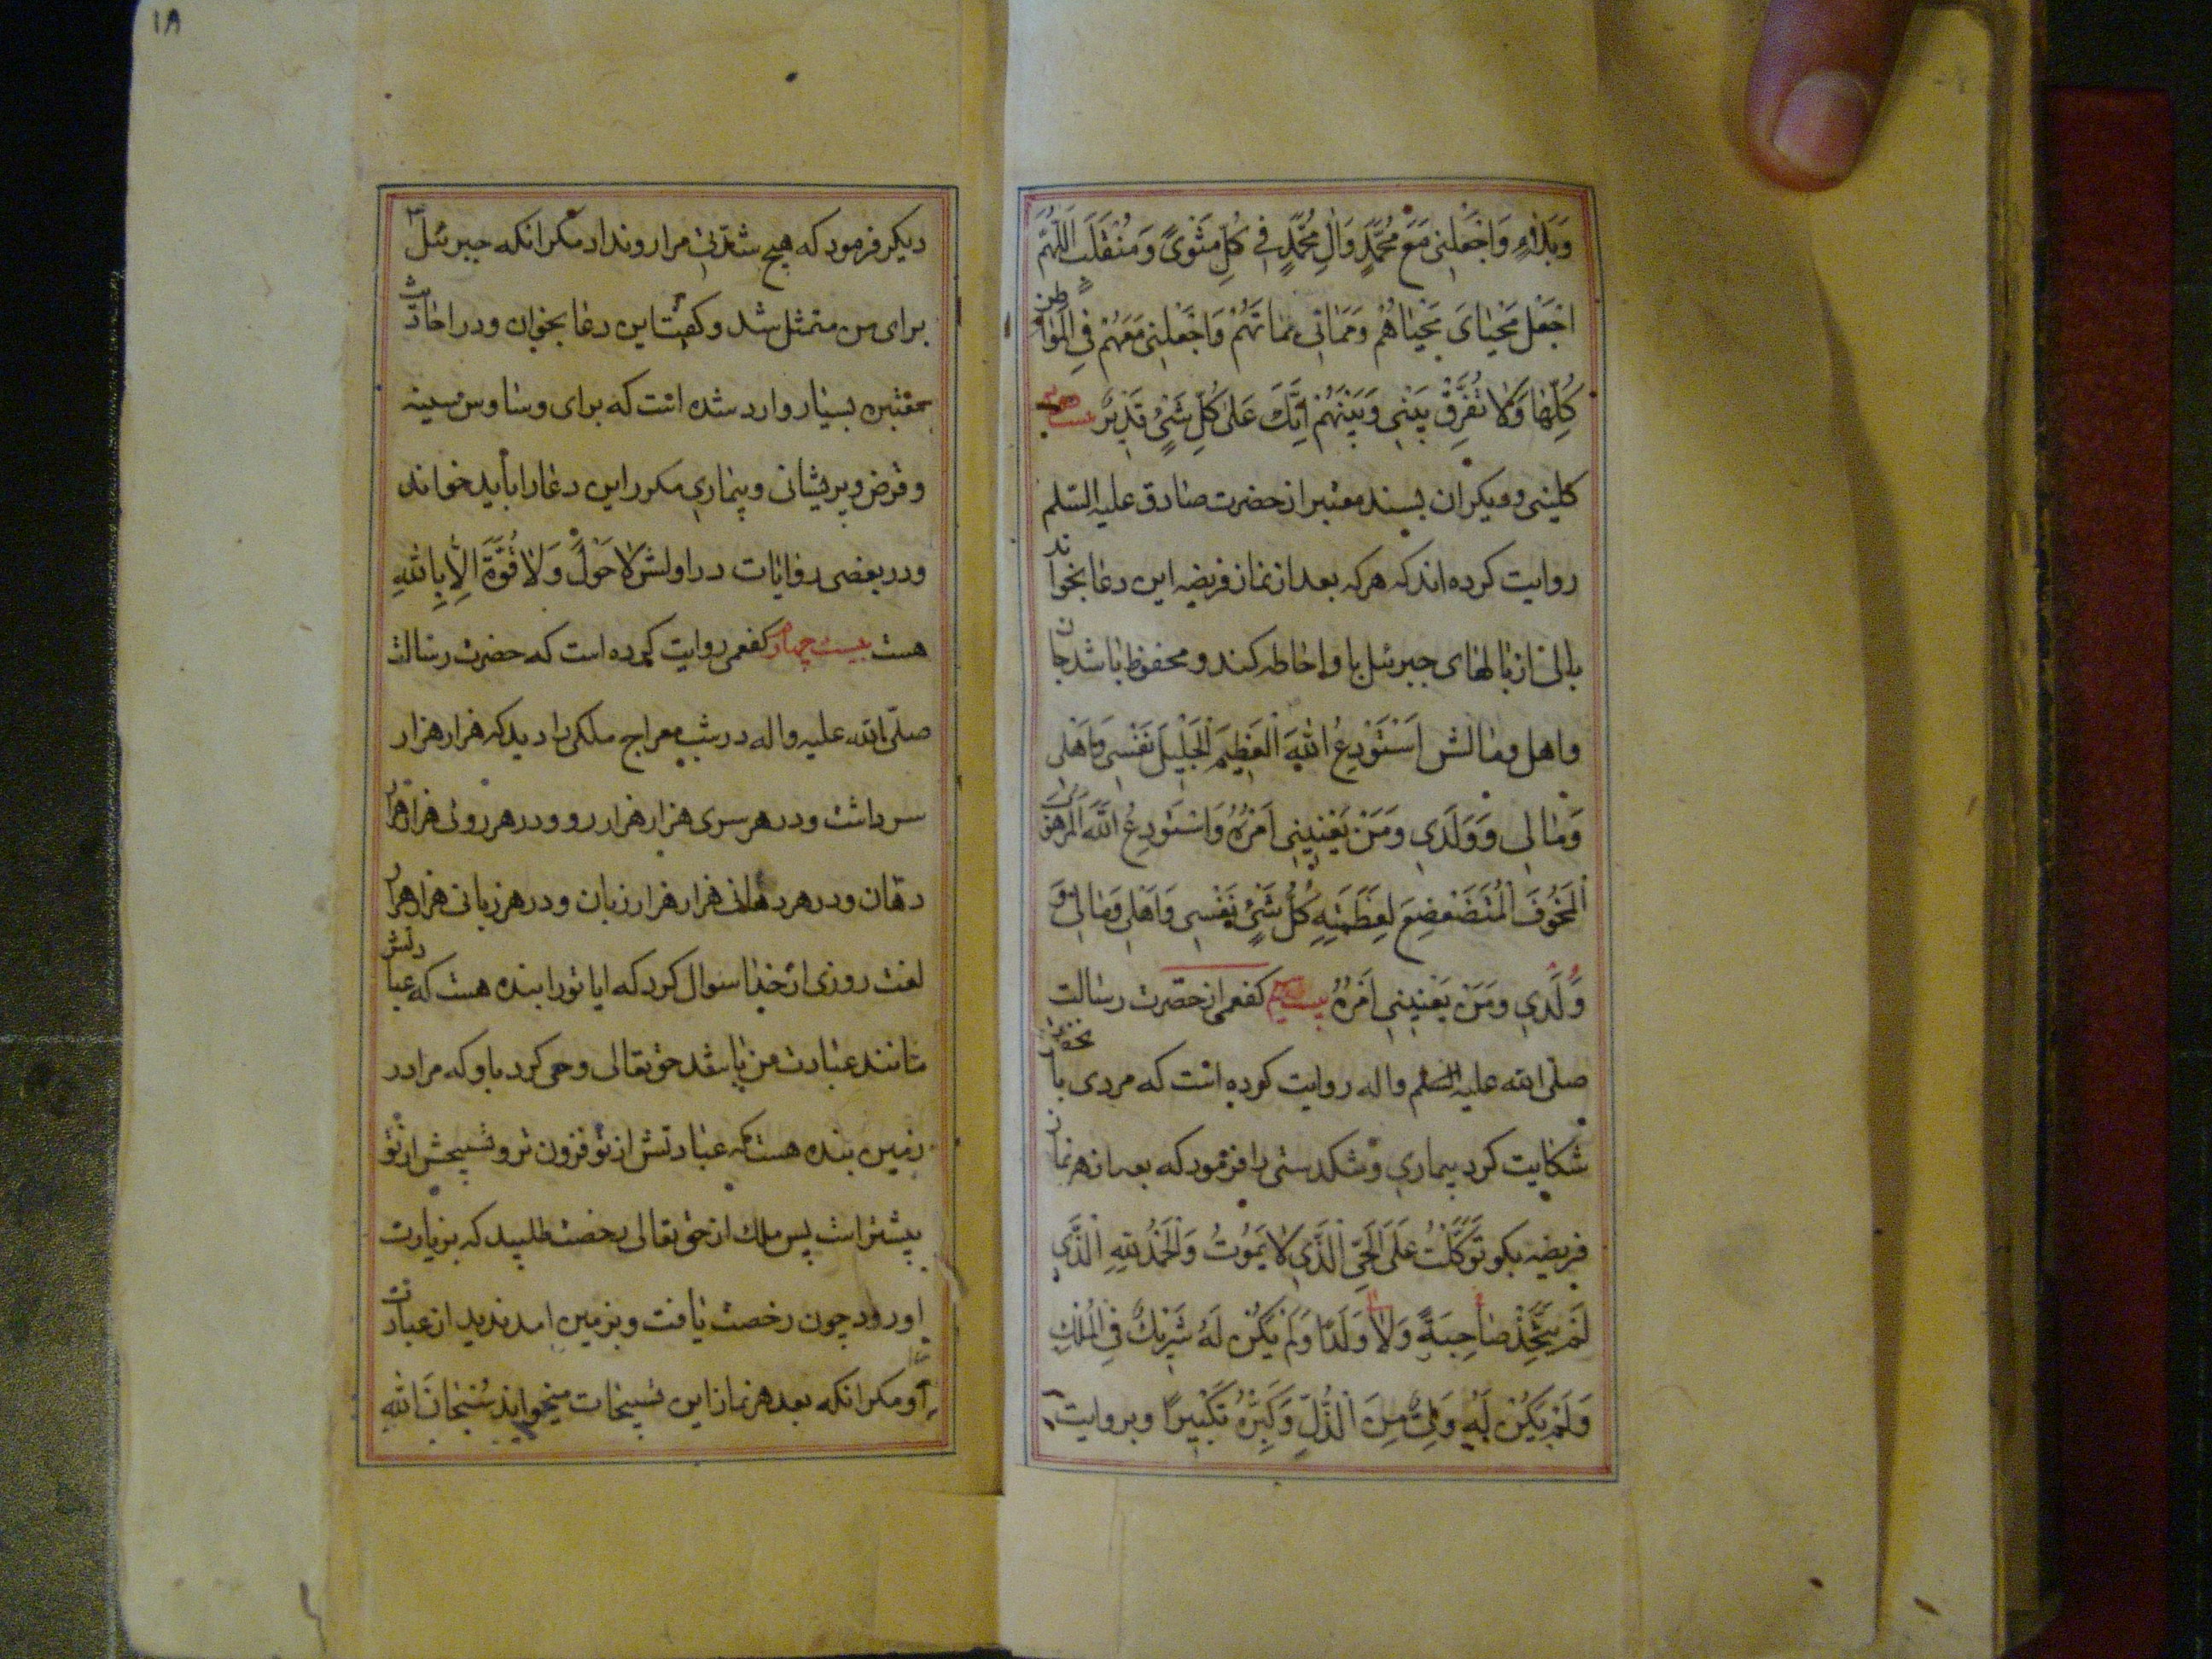 وَبَلَاءٍ وَاجْعَلْنِی مَعَ مُحَمَّدٍ وَآلِ مُحَمَّدٍ فِی کُلِّ مَثْوًی وَمُنْقَلَبٍ اَللّٰهُمَّ
اجْعَلْ مَحْیَایَ مَحْیَاهُمْ وَمَمَاتِی مَمَاتَهُمْ وَاجْعَلْنِی مَعَهُمْ فِی الْمَوَاطِنِ
کُلِّهَا وَلَا تُفَرِّقْ بَیْنِی وَبَیْنَهُمْ اِنَّکَ عَلٰی کُلِّ شَیْءٍ قَدِیرٌ
کلینی و دیکران بسند معتبر از حضرت صادق علیه السلم
روایت کرده اند که هر که بعد از نماز فریضه این دعا بخواند
بالی از بالهای جبرئیل باو احاطه کند و محفوظ باشد جان
و اهل و مالش اَسْتَوْدِعُ اللّٰهَ الْعَظِیمَ الْجَلِیلَ نَفْسِی وَاَهْلِی
وَمَالِی وَوَلَدِی وَمَنْ یَعْنِینِی اَمْرُهُ وَاَسْتَوْدِعُ اللّٰهَ الْمَرْهُوبَ
الْمَخُوفَ الْمُتَضَعْضِعَ لِعَظَمَتِهِ کُلُّ شَیْءٍ نَفْسِی وَاَهْلِی وَمَالِی وَ
وَلَدِی وَمَنْ یَعْنِینِی اَمْرُهُ کفعمی از حضرت رسالت
صلی الله علیه السلم واله روایت کرده است که مردی بآنحضرت
شکایت کرد بیماری و تنکدستی را فرمود که بعد از هر نماز
فریضه بکو تَوَکَّلْتُ عَلَی الْحَیِّ الَّذِی لَا یَمُوتُ وَالْحَمْدُ لِلّٰهِ الَّذِی
لَمْ یَتَّخِذْ صَاحِبَةً وَلَا وَلَدًا وَلَمْ یَکُنْ لَهُ شَرِیكٌ فِی الْمُلْكِ
وَلَمْ یَکُنْ لَهُ وَلِیٌّ مِنَ الذُّلِّ وَکَبِّرْهُ تَکْبِیرًا و بروایت
١٨
دیکر فرمود که هیچ شدّتی مرا رو نداد مکر انکه جبرئیل
برای من متمثل شد و کفت این دعا بخوان و در احادیث
معتبره بسیار وارد شده است که برای وساوس سینه
و قرض و پریشانی و بیماری مکرر این دعا را باید خواند
و در بعضی روایات در اولش لَا حَوْلَ وَلَا قُوَّةَ اِلَّا بِاللّٰهِ
هست بیست چهارم کفعمی روایت کرده است که حضرت رسالت
صلی الله علیه واله در شب معراج ملکی را دید که هزار هزار
سر داشت و در هر سری هزار هزار رو و در هر روئی هزار هزار
دهان و در هر دهانی هزار هزار زبان و در هر زبانی هزار هزار
لغت روزی از خدا سوال کرد که ایا تو را بنده هست که عبادتش
مانند عبادت من باشد حق تعالی وحی کرد باو که مرا در
زمین بنده هست که عبادتش از تو فزون تر و تسبیحش از تو
بیشتر است پس ملك از حق تعالی رخصت طلبید که بزیارت
او رود چون رخصت یافت و بزمین امد ندید از عبادت
او مکر انکه بعد هر نماز این تسبیحات میخواند سُبْحَانَ اللّٰهِ